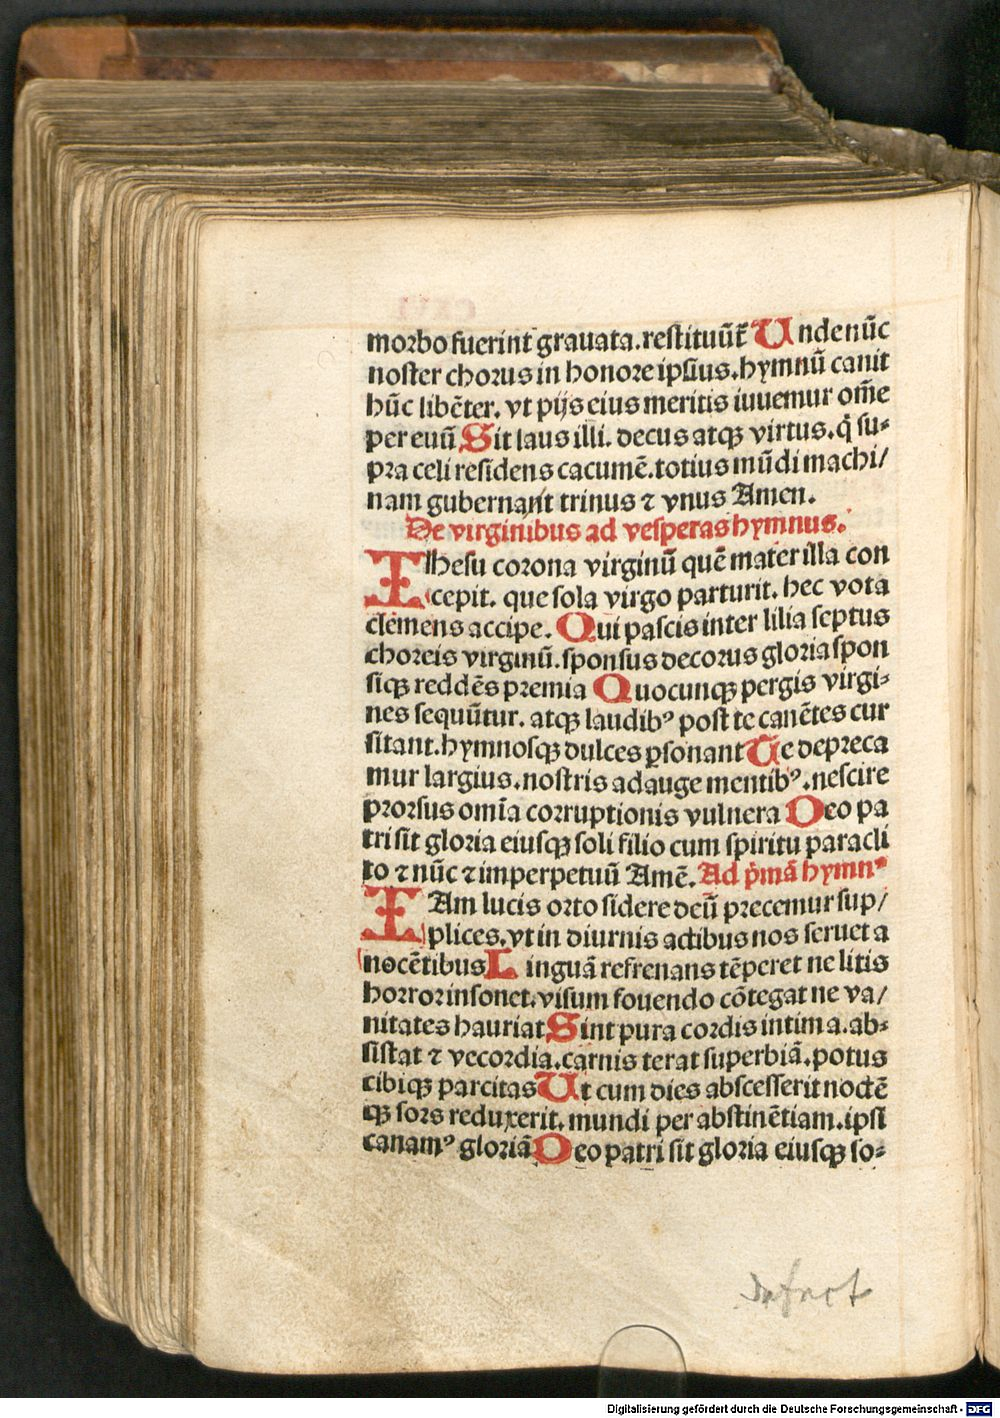 morbo fuerint grauata. restituūt̄ Unde nūc
noster chorus in honore ipsius. hymnū canit
hūc libēter. vt pijs eius meritis iuuemur om̄e
per euū Sit laus illi. decus atqꝫ virtus. q̇ su⸗
pra celi residens cacumē. totius mūdi machi/
nam gubernant trinus ⁊ vnus Amen.
De virginibus ad vesperas hymnus.
Ihesu corona virginū quē mater illa con
cepit. que sola virgo parturit. hec vota
clēmens accipe. Qui pascis inter lilia septus
choreis virginū. sponsus decorus gloria spon
siqꝫ reddēs premia Quocunqꝫ pergis virgi⸗
nes sequūtur. atqꝫ laudibꝰ post te canētes cur
sitant. hymnosqꝫ dulces ꝑsonant Te depreca
mur largius. nostris adauge mentibꝰ. nescire
prorsus omīa corruptionis vulnera Deo pa
tri sit gloria eiusqꝫ soli filio cum spiritu paracli
to ⁊ nūc ⁊ imperpetuū Amē. Ad p̄mā hymnꝰ
IAm lucis orto sidere deū precemur sup/
plices. vt in diurnis actibus nos seruet a
nocētibus Linguā refrenans tēperet ne litis
horror insonet. visum fouendo cōtegat ne va/
nitates hauriat Sint pura cordis intima. ab⸗
sistat ⁊ vecordia. carnis terat superbiā. potus
cibiqꝫ parcitas Ut cum dies abscesserit noctē
qꝫ sors reduxerit. mundi per abstinētiam. ipsi
canamꝰ gloriā Deo patri sit gloria eiusqꝫ so⸗
defect
Digitalisierung gefördert durch die Deutsche Forschungsgemeinschaft - DFG